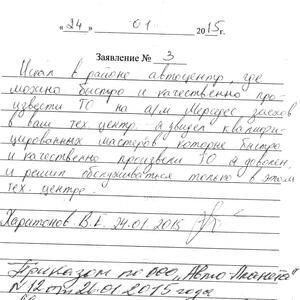 « 24 » 01 2015г.
Заявление № 3
Искал в районе автоцентр, где
можно быстро и качественно про-
извести ТО на а/м Мерседес заехав
в ваш тех. центр я увидел квалифи-
цированных мастеров которые быстро
и качественно произвели ТО я доволен
и решил обслуживаться только в этом
тех. центре.
Харитонов В.Е. 24.01.2015
Приказом по ООО „Авто
N 12 от 26.01.2015 года